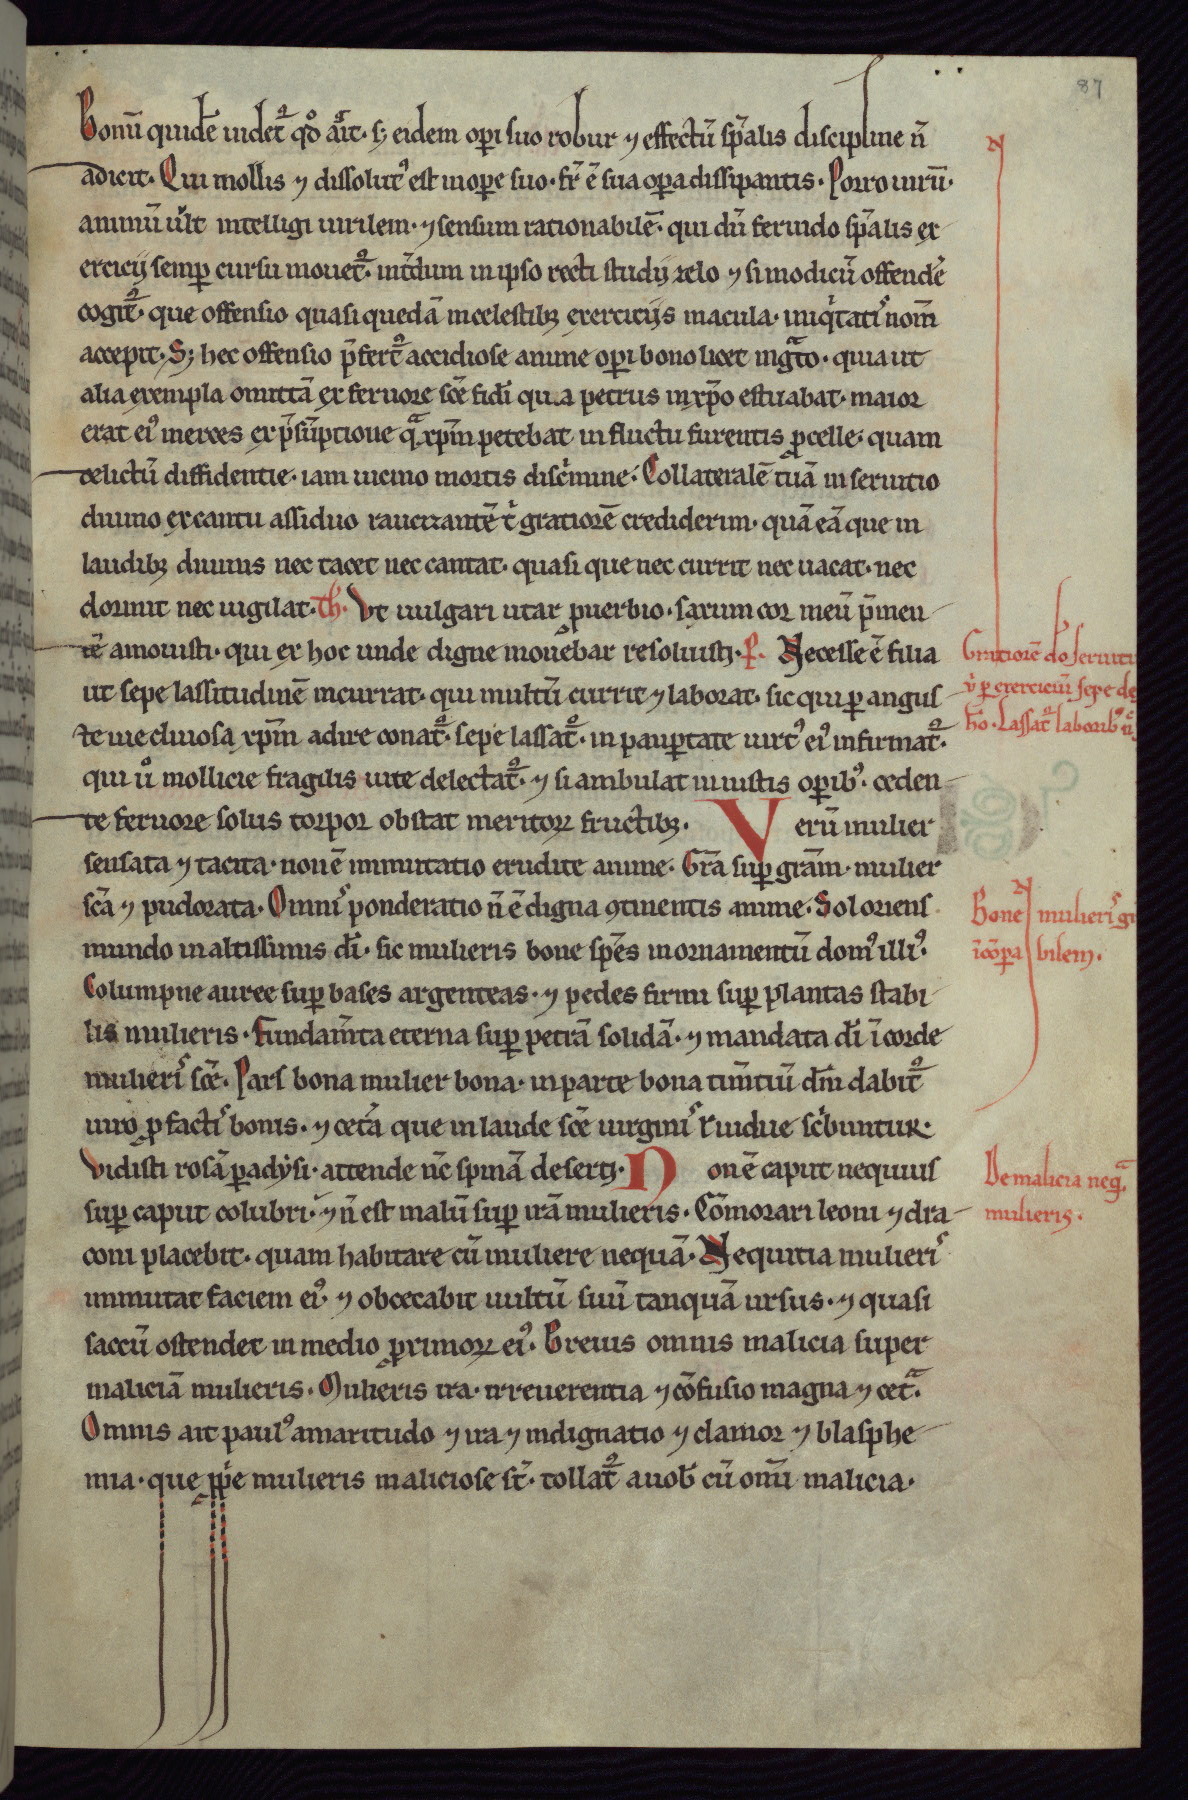 87
Bonū quidē uidet᷑ qd̊ ait. s; eidem oꝑi suo robur ⁊ effectū sp̄alis discipline n̄
adicit. Qui mollis ⁊ dissolut᾿ est in oꝑe suo. fr̄ ē sua oꝑa dissipantis. Porro uirū.
animū uult intelligi uirilem. ⁊ sensum rationabilē. qui dū feruido sp̄alis ex
ercicij semꝑ cursu mouet᷑. int̄dum in ipso recti studij zelo ⁊ si modicū offendē
cogit᷑. que offensio quasi quedā in celestibꝫ exercitijs macula. iniq̇tatis nom̄
accepit. S; hec offensio p̄fert᷑ accidiose anime oꝑi bono licet ing̃to. quia ut
alia exempla omittā ex feruore sc̄e fidei qua petrus in xp̄o estuabat. maior
erat ei᾿ merces ex p̄sūptione q̃ xp̄m petebat in fluctu furentis ꝓcelle. quam
delictū diffidentie. iam uicino mortis disc̄mine. Collateralē tuā in seruitio
diuino ex cantu assiduo raucizantē t̄ gratiorē crediderim. quā eā que in
laudibꝫ diuinis nec tacet nec cantat. quasi que nec currit nec uacat. nec
dormit nec uigilat. Th. Vt uulgari utar ꝓuerbio. saxum cor meū p̄meu
tē amouisti. qui ex hoc unde digne mouēbar resoluisti. P. Necesse ē filia
ut sepe lassitudinē incurrat. qui multū currit ⁊ laborat. sic qui ꝑ angus
te uie cliuosa xp̄m adire conat᷑. sepe lassat᷑. in pauꝑtate uirt᾿ ei᾿ infirmat᷑.
qui u̇ mollicie fragilis uite delectat᷑. ⁊ si ambulat in iustis oꝑib᾿. ceden
te feruore solus torpor obstat meritoꝝ fructibꝫ. Verū mulier
sensata ⁊ tacita. non ē inmutatio erudite anime. Gr̄a suꝑ gr̄am. mulier
sc̄a ⁊ pudorata. Omnis ponderatio n̄ ē digna ꝯtinentis anime. Sol oriens
mundo in altissimis di̅. sic mulieris bone sp̄es in ornamentū dom᾿ illi᾿.
Columpne auree suꝑ bases argenteas. ⁊ pedes firmi suꝑ plantas stabi
lis mulieris. Fundam̄ta eterna suꝑ petrā solidā. ⁊ mandata di̅ ī corde
mulieris sc̄e. Pars bona mulier bona. in parte bona tim̄tiū dm̄ dabit᷑
uiro ꝓ factis bonis. ⁊ cet̄a que in laude sc̄e uirginis ł uidue sc̄buntur.
Vidisti rosā ꝑadysi. attende nc̄ spinā deserti. Non ē caput nequius
suꝑ caput colubri. ⁊ n̄ est malū suꝑ irā mulieris. Cōmorari leoni ⁊ dra
coni placebit. quam habitare cū muliere nequā. Nequitia mulieris
inmutat faciem ei᾿. ⁊ obcecabit uultū suū tanquā ursus. ⁊ quasi
saccū ostendet in medio ꝓximoꝝ ei᾿. Breuis omnis malicia super
maliciā mulieris. Mulieris ira. irreuerentia ⁊ cōfusio magna ⁊ cet̃.
Omnis ait paul᾿ amaritudo ⁊ ira ⁊ indignatio ⁊ clamor ⁊ blasphe
mia. que ꝓp̄e mulieris maliciose st̄. tollat᷑ a uob̄ cū om̄i malicia.
Gratiorē do seruitu
ꝑ exerciciū sepe de
Lassat᷑ laborib᾿
N
Bone mulieris
īcōpa bilem.
De malicia neq̃
mulieris.